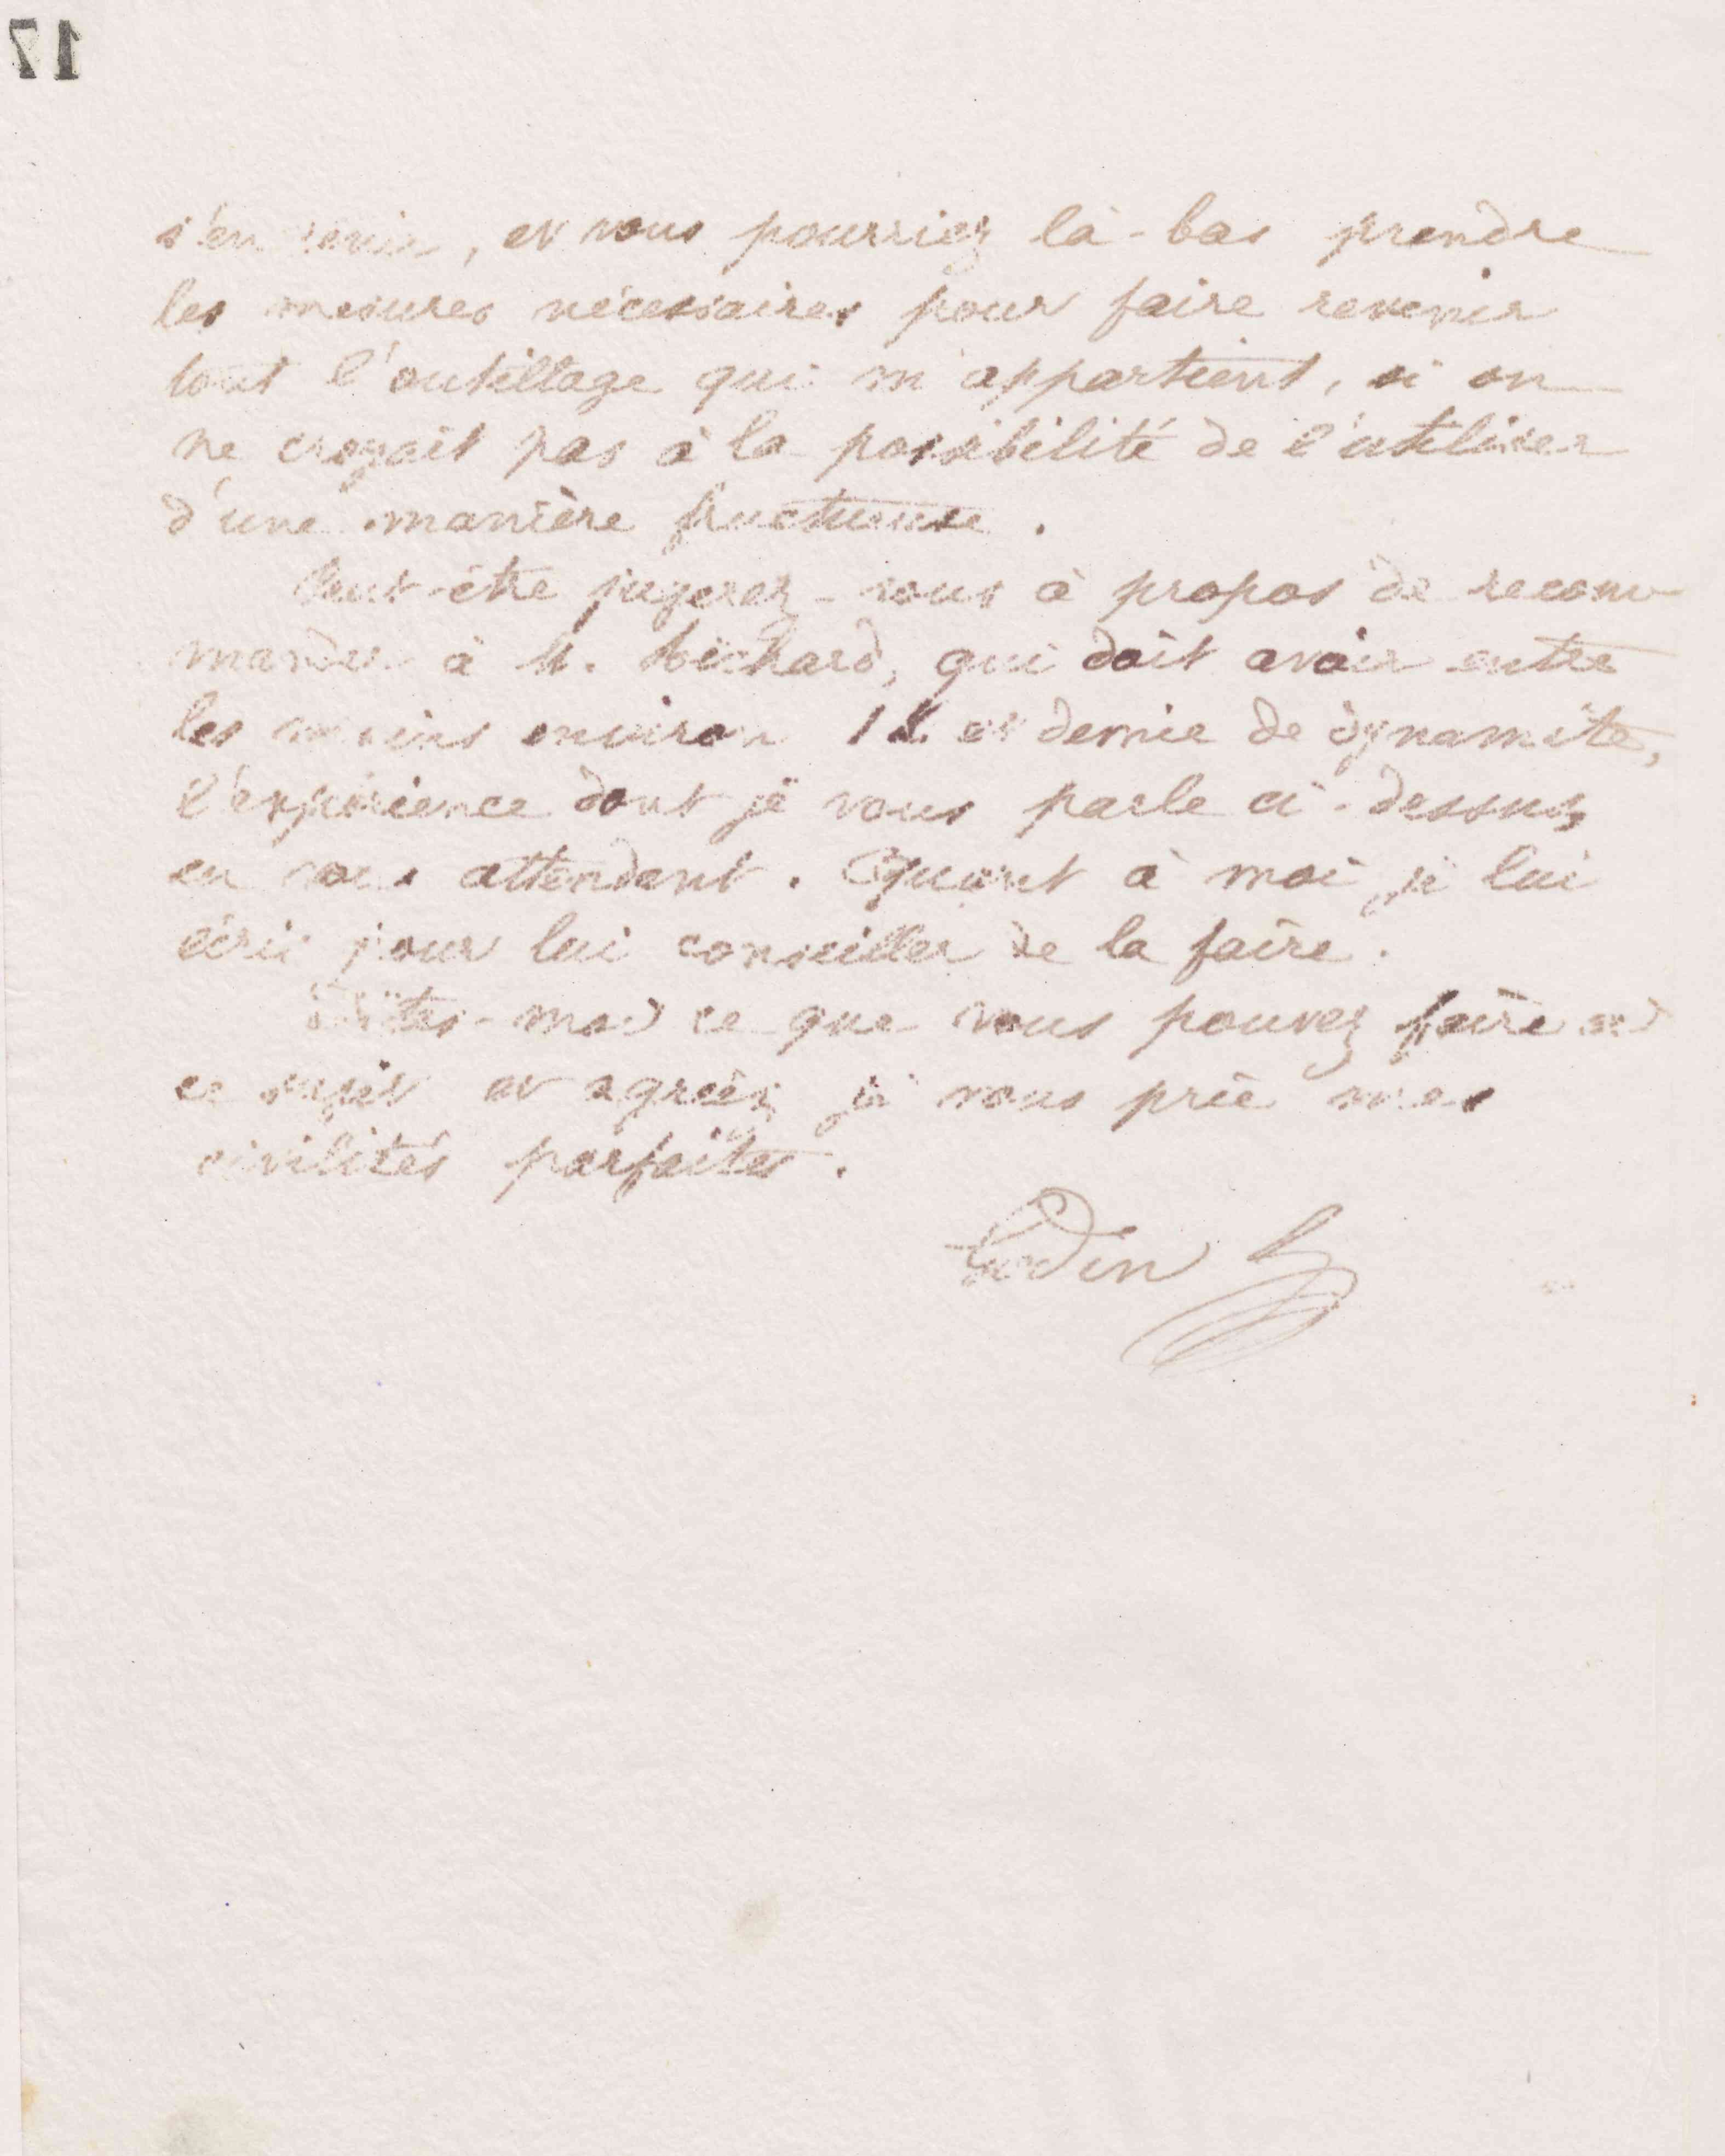 17
s'en servir, et vous pourriez là-bas prendre
les mesures nécessaires pour faire revenir
tout l'outillage qui m'appartient, si on
ne croyait pas à la possibilité de l'utiliser
d'une manière fructueuse.
Peut-être jugerez-vous à propos de recom-
mander à M. Richard, qui doit avoir entre
les mains environ 1 K. et demie de dynamite,
l'expérience dont je vous parle ci-dessus,
en vous attendant. Quant à moi je lui
écris pour lui conseiller de la faire.
Dites-moi ce que vous pouvez faire à
ce sujet et agréez je vous prie mes
civilités parfaites.
Godin